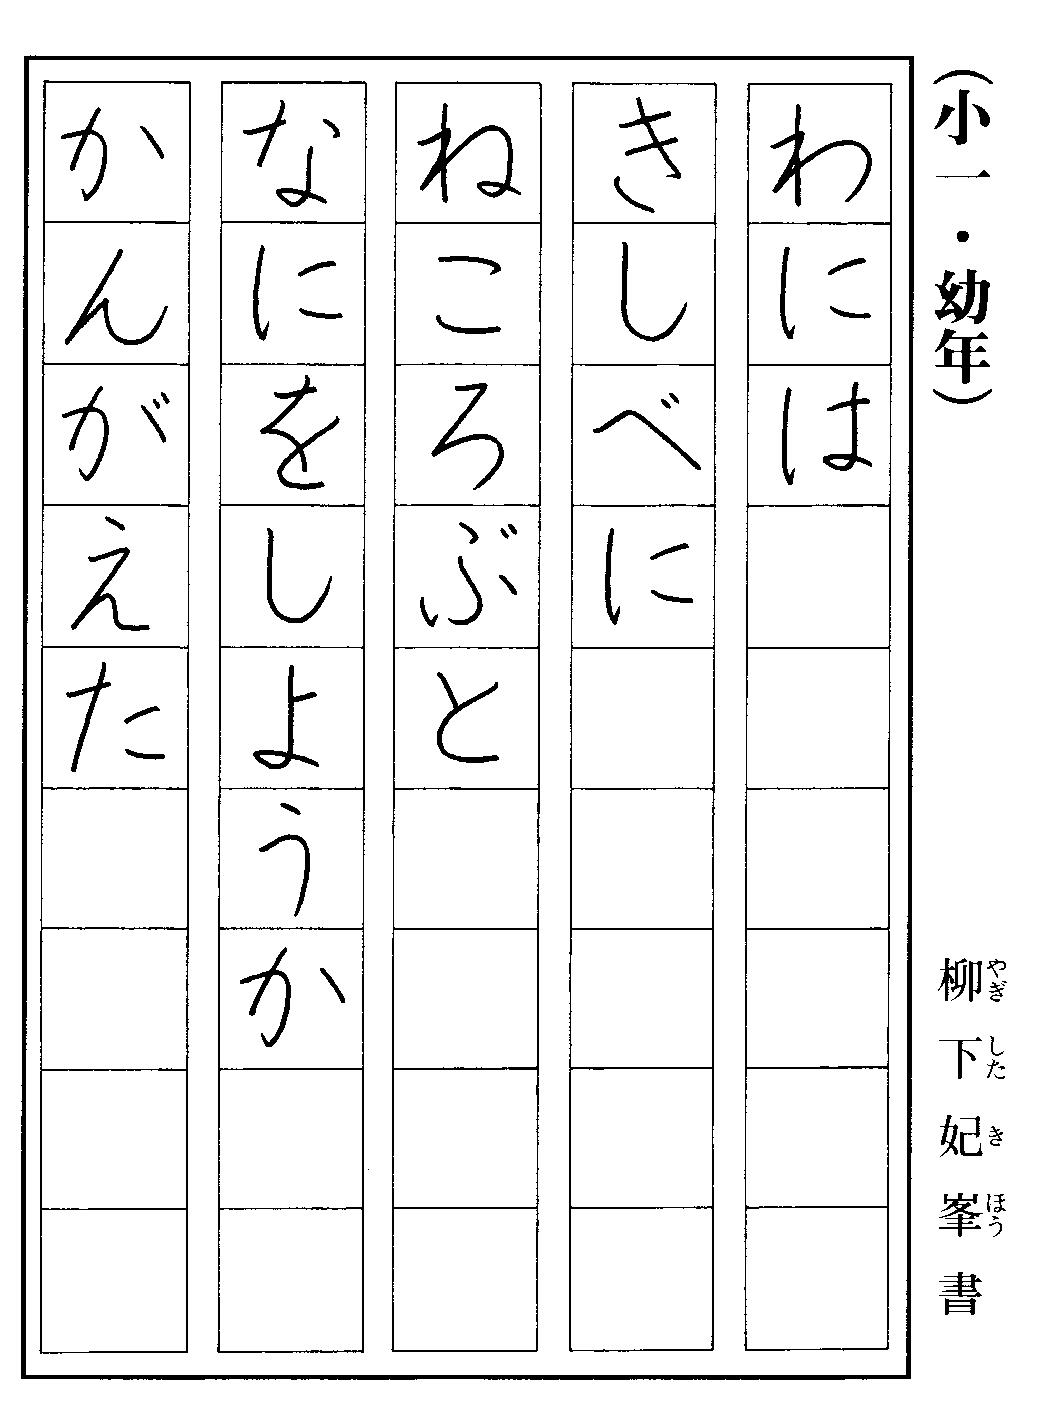 （小一・幼年）
柳下妃峯書
やぎしたきほう
わには
きしべに
ねころぶと
なにをしようか
かんがえた